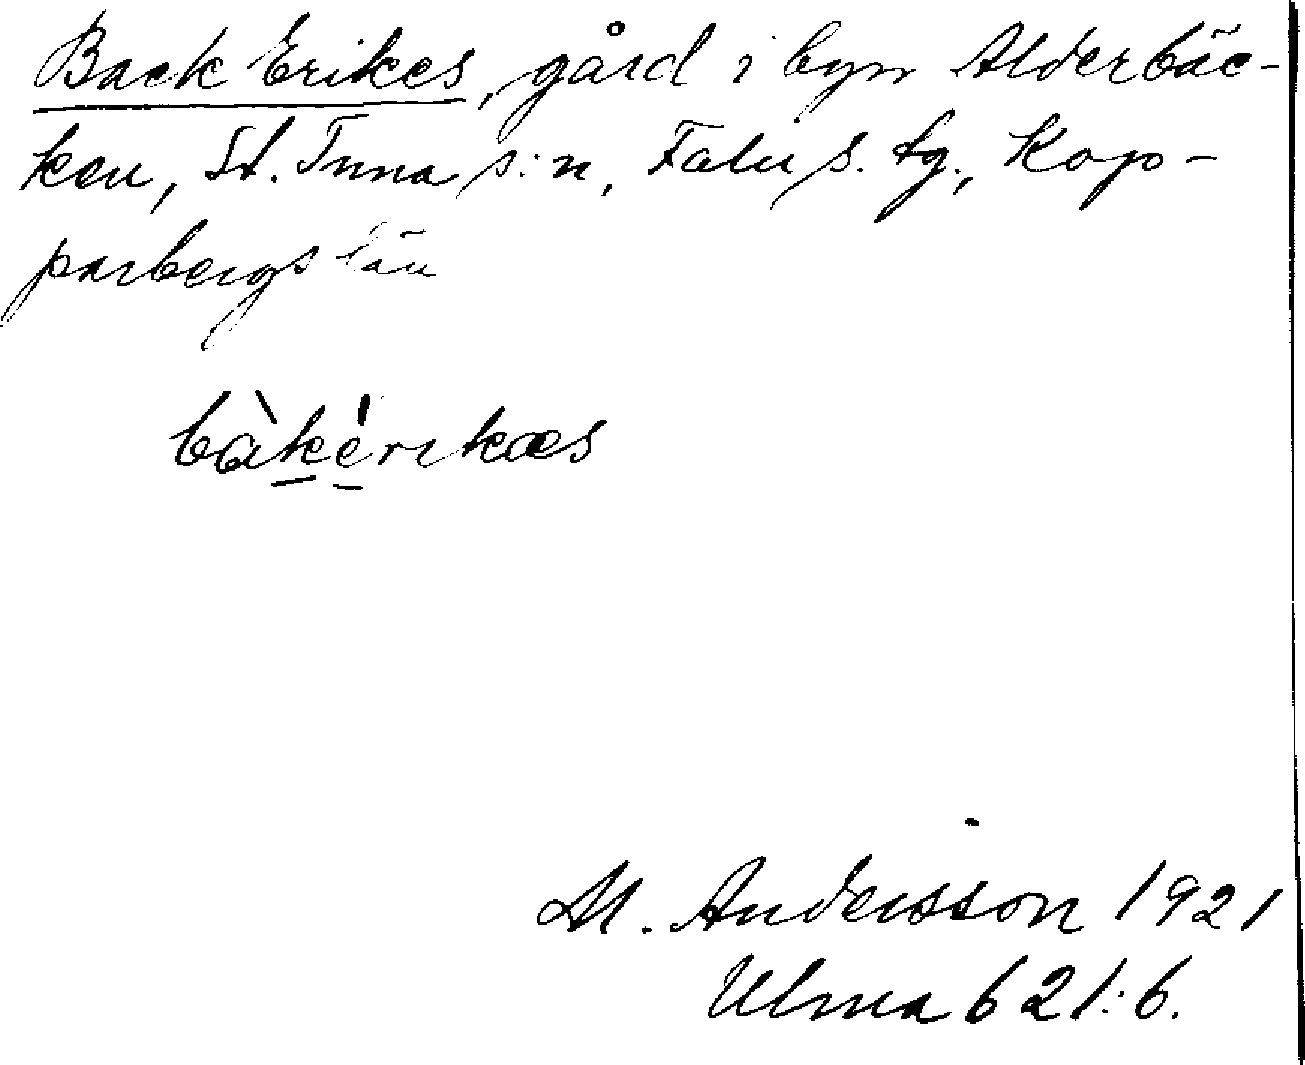 Back Erikes, gård i byn Alderbäc-
ken, St. Tuna s:n, Falu s. tg., Kop-
parbergs län
bàkérikæs
M. Andersson 1921
Ulma 621:6.